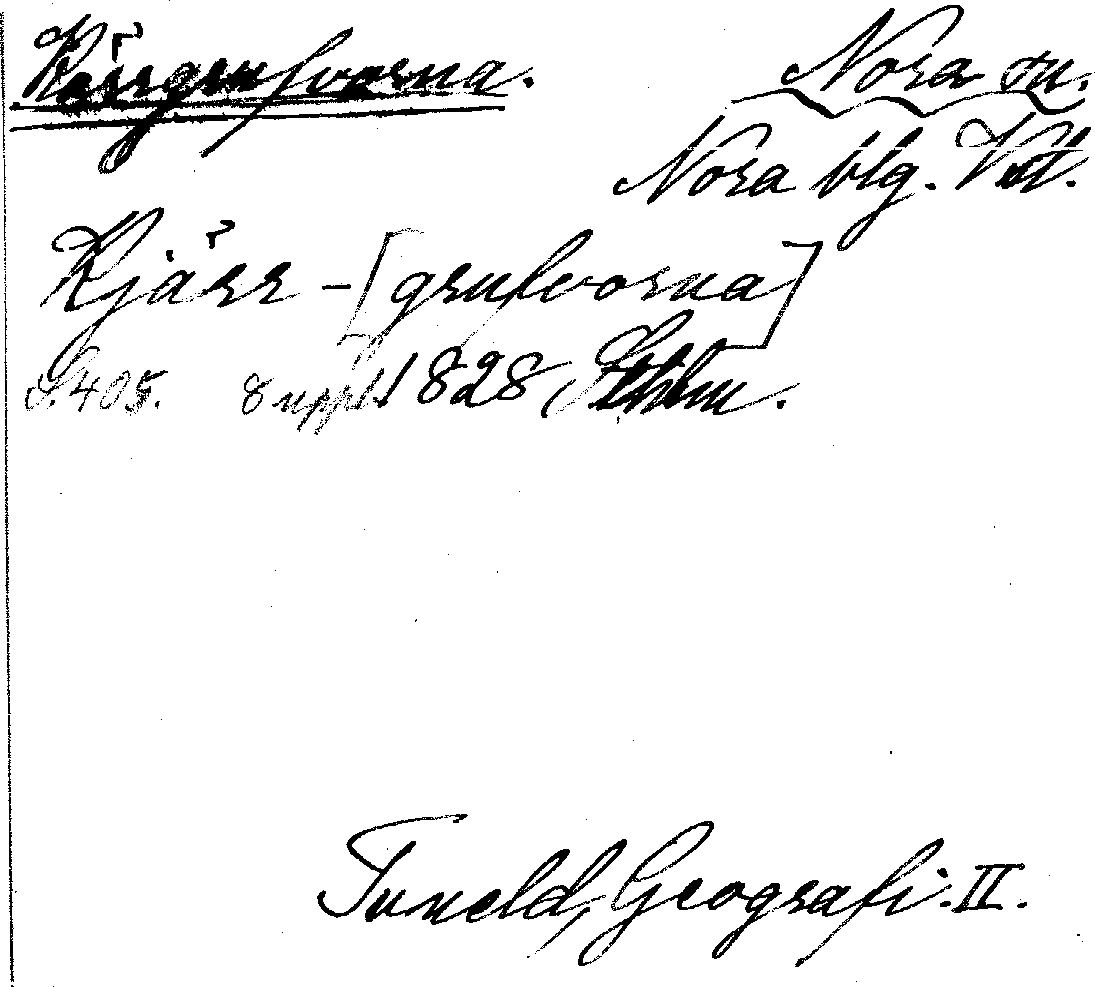 Kärrgrufvorna.
Nora sn.
Nora blg. Vstl.
Kjärr-[grufvorna]
S. 405. 8 uppl. 1828, Sthlm.
Tuneld, Geografi. II.